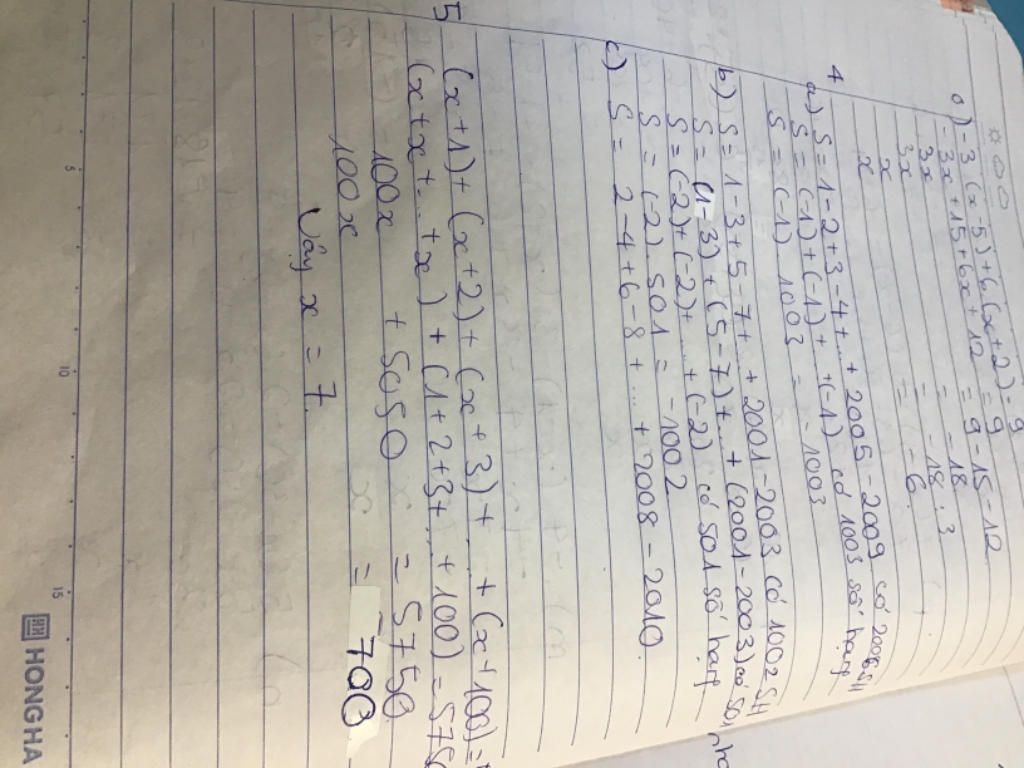 o) -3(x-5)+6(x+2) = 9
-3x+15+6x+12 = 9
3x = 9-15-12
3x = -18
x = -18:3
x = -6
4
a) S=1-2+3-4+...+2005-
S=(-1)+(-1)+...+(-1) có 1003 số hạng
S=(-1).1003 = -1003
b) S=1-3+5-7+...+2001-2003 có 1002 SH
S=(1-3)+(5-7)+...+(2001-2003) có 501
S=(-2)+(-2)+...+(-2) có 501 số hạng
S=(-2).501 = -1002
c) S= 2-4+6-8+...+2008-2010.
5
(x+1)+(x+2)+(x+3)+...+(x+100)=
(x+x+...+x)+(1+2+3+...+100)=575
100x + 5050 = 5750
100x = 700
Vậy x = 7.
5 10 15
HONG HA